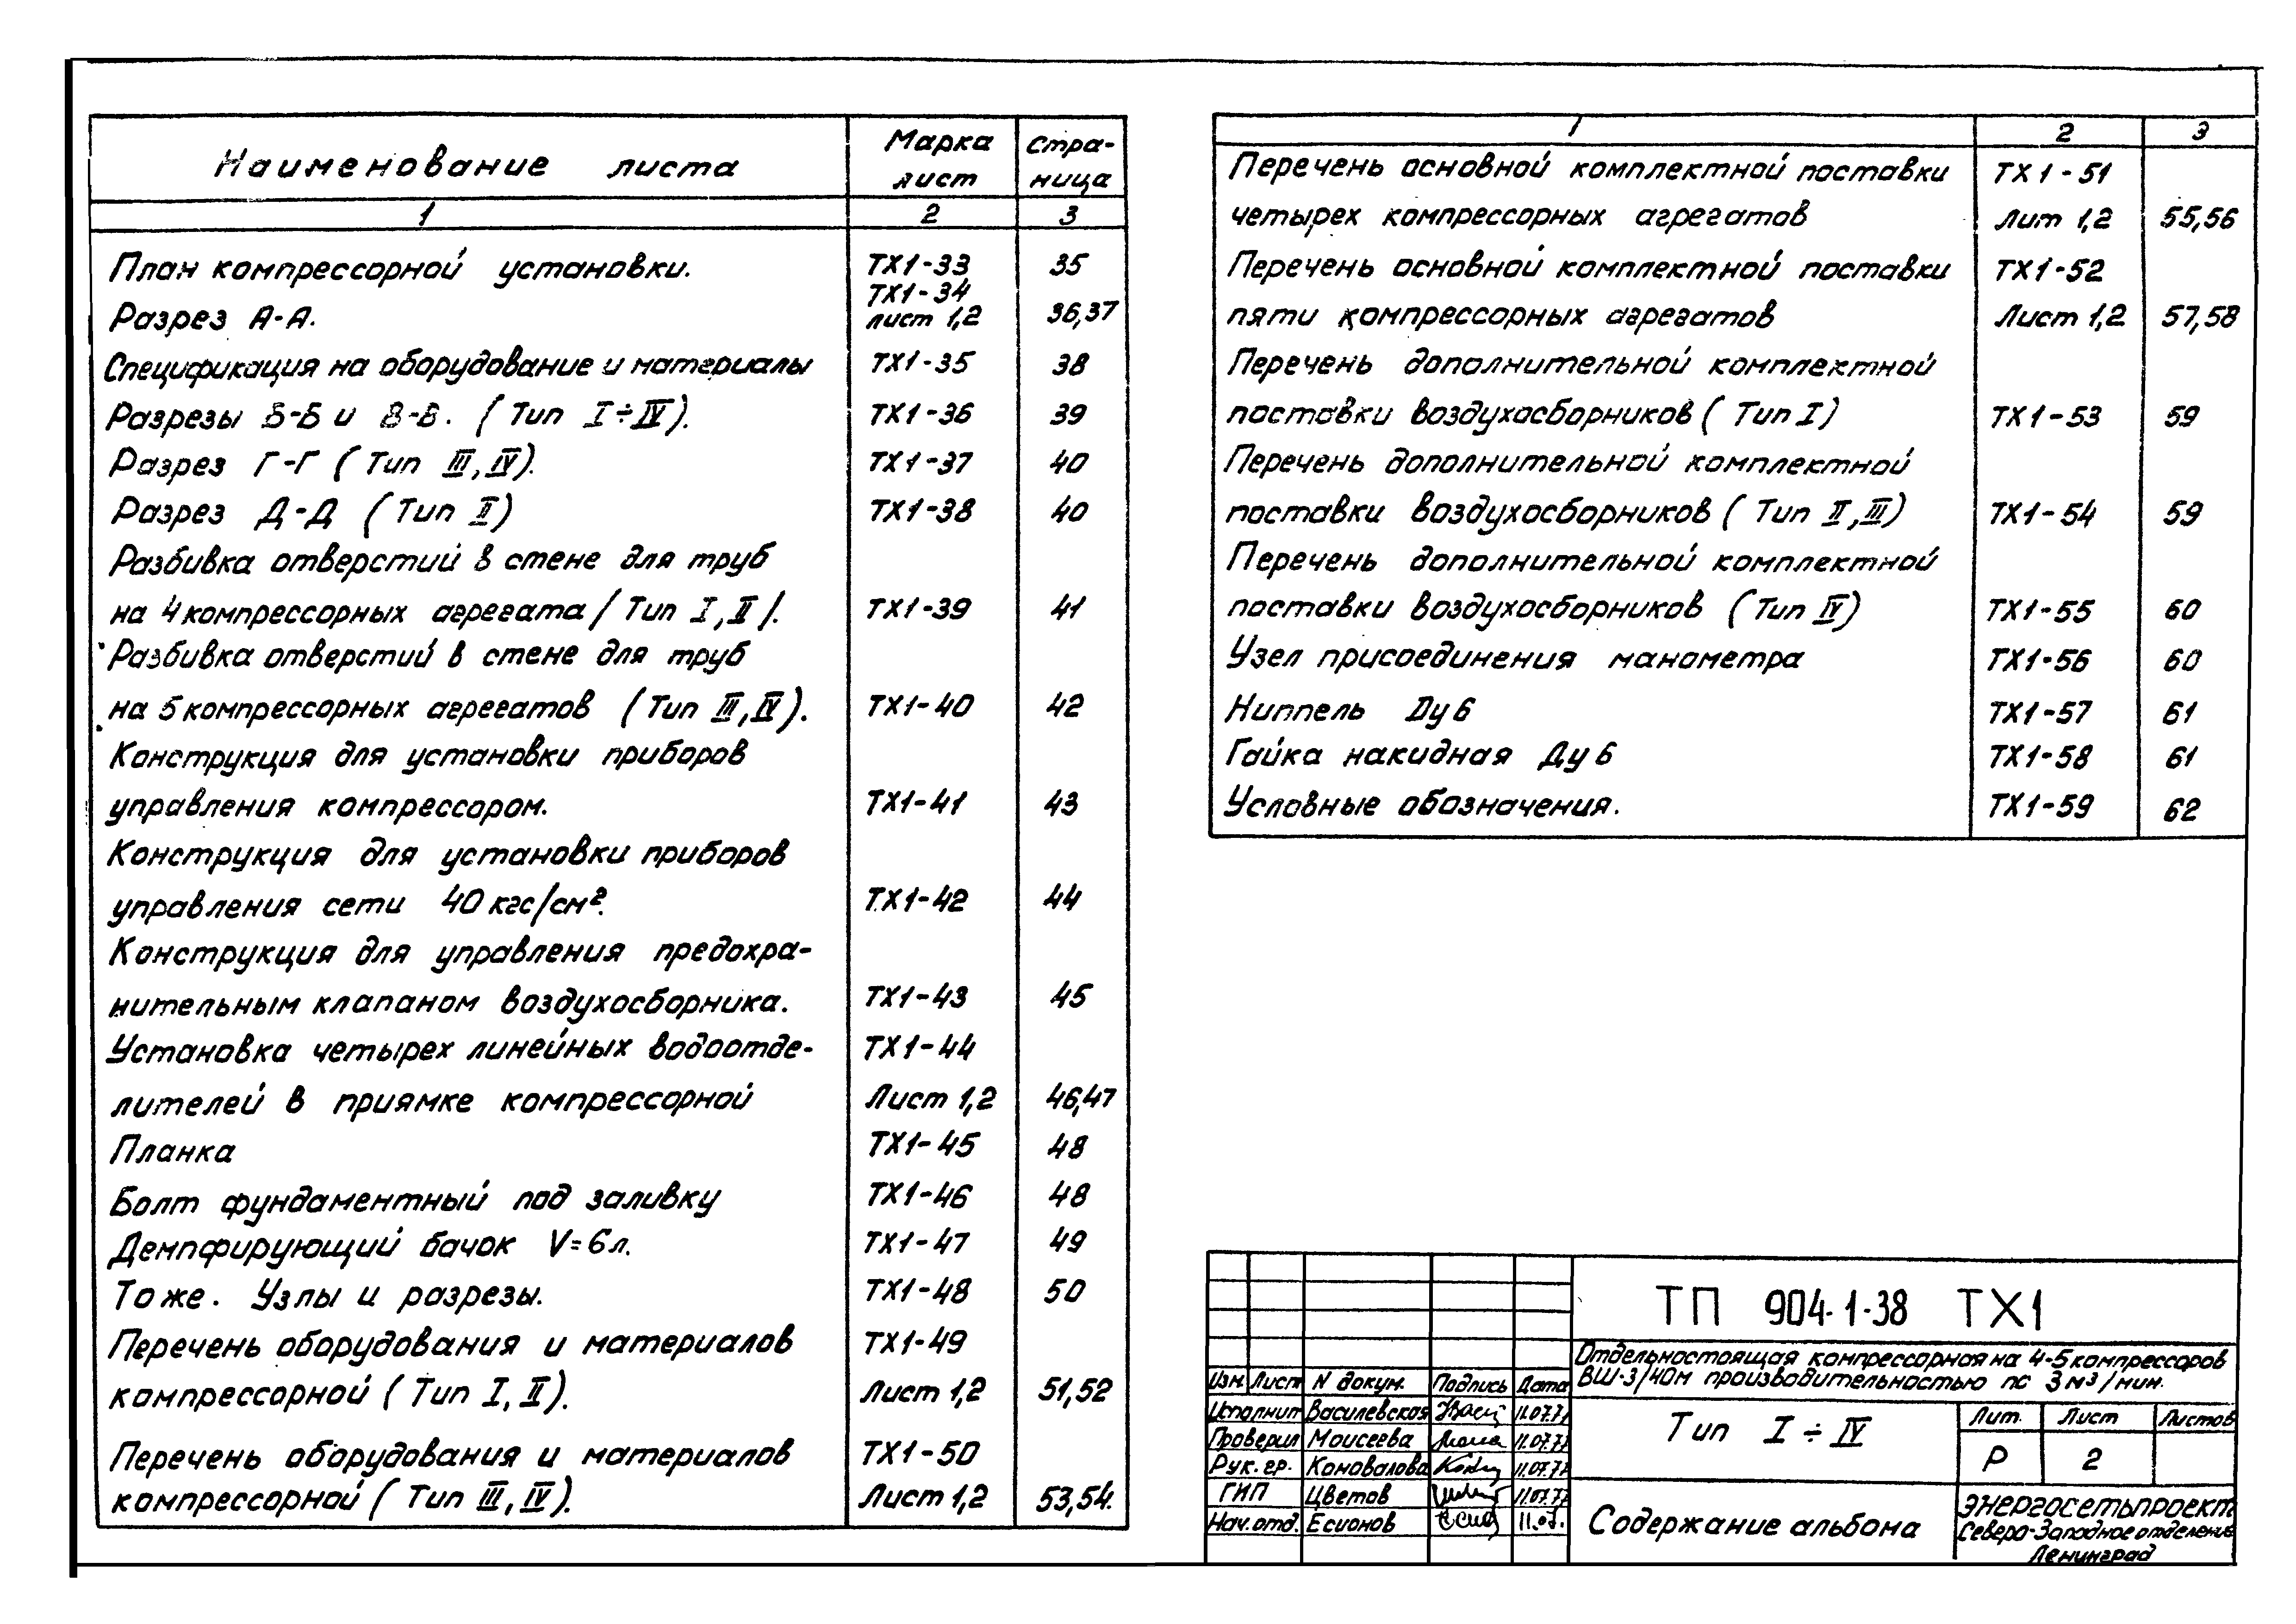 Наименование листа
Марка лист
Стра-ница
1 2 3
План компрессорной установки. ТХ1-33 35
Разрез А-А. ТХ1-34 лист 1,2 36,37
Спецификация на оборудование и материалы ТХ1-35 38
Разрезы Б-Б и В-В. (Тип I÷IV). ТХ1-36 39
Разрез Г-Г (Тип III, IV). ТХ1-37 40
Разрез Д-Д (Тип II) ТХ1-38 40
Разбивка отверстий в стене для труб
на 4 компрессорных агрегата /Тип I, II/. ТХ1-39 41
Разбивка отверстий в стене для труб
на 5 компрессорных агрегатов (Тип III, IV). ТХ1-40 42
Конструкция для установки приборов
управления компрессором. ТХ1-41 43
Конструкция для установки приборов
управления сети 40 кгс/см². ТХ1-42 44
Конструкция для управления предохра-
нительным клапаном воздухосборника. ТХ1-43 45
Установка четырех линейных водоотде- ТХ1-44
лителей в приямке компрессорной Лист 1,2 46,47
Планка ТХ1-45 48
Болт фундаментный под заливку ТХ1-46 48
Демпфирующий бачок V=6л. ТХ1-47 49
Тоже. Узлы и разрезы. ТХ1-48 50
Перечень оборудования и материалов ТХ1-49
компрессорной (Тип I, II). Лист 1,2 51,52
Перечень оборудования и материалов ТХ1-50
компрессорной (Тип III, IV). Лист 1,2 53,54.
1 2 3
Перечень основной комплектной поставки ТХ1-51
четырех компрессорных агрегатов Лит 1,2 55,56
Перечень основной комплектной поставки ТХ1-52
пяти компрессорных агрегатов Лист 1,2 57,58
Перечень дополнительной комплектной
поставки воздухасборников (Тип I) ТХ1-53 59
Перечень дополнительной комплектной
поставки воздухосборников (Тип II, III) ТХ1-54 59
Перечень дополнительной комплектной
поставки воздухосборников (Тип IV) ТХ1-55 60
Узел присоединения манометра ТХ1-56 60
Ниппель Ду 6 ТХ1-57 61
Гайка накидная Ду 6 ТХ1-58 61
Условные обозначения. ТХ1-59 62
ТП 904-1-38 ТХ1
Отдельностоящая компрессорная на 4-5 компрессоров
ВШ-3/40м производительностью по 3 м³/мин.
Изм. Лист N докум. Подпись Дата
Исполнит Василевская 11.07.77
Проверил Моисеева 11.07.77
Рук. гр. Коновалова 11.07.77
ГИП Цветов 11.07.77
Нач. отд. Есионов 11.07.
Тип I ÷ IV
Лит. Лист Листов
Р 2
Содержание альбома
ЭНЕРГОСЕТЬПРОЕКТ
Северо-Западное отделение
Ленинград